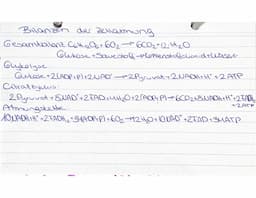 Bilanzen der Zellatmung
Gesamtbilanz: C₆H₁₂O₆ + 6O₂ → 6CO₂ + 12H₂O
Glukose + Sauerstoff → Kohlenstoffdioxid + Wasser
Glykolyse
Glukose + 2(ADP+P) + 2NAD⁺ → 2Pyruvat + 2NADH+H⁺ + 2ATP
2Pyruvat + 8NAD⁺ + 2FAD + H₂O + 2(ADP+P) → 6CO₂ + 8NADH+H⁺ + 2FADH₂
+2ATP
Atmungskette
10NADH+H⁺ + 2FADH₂ + (ADP+P) + 6O₂ → 12H₂O + 10NAD⁺ + 2FAD + ATP